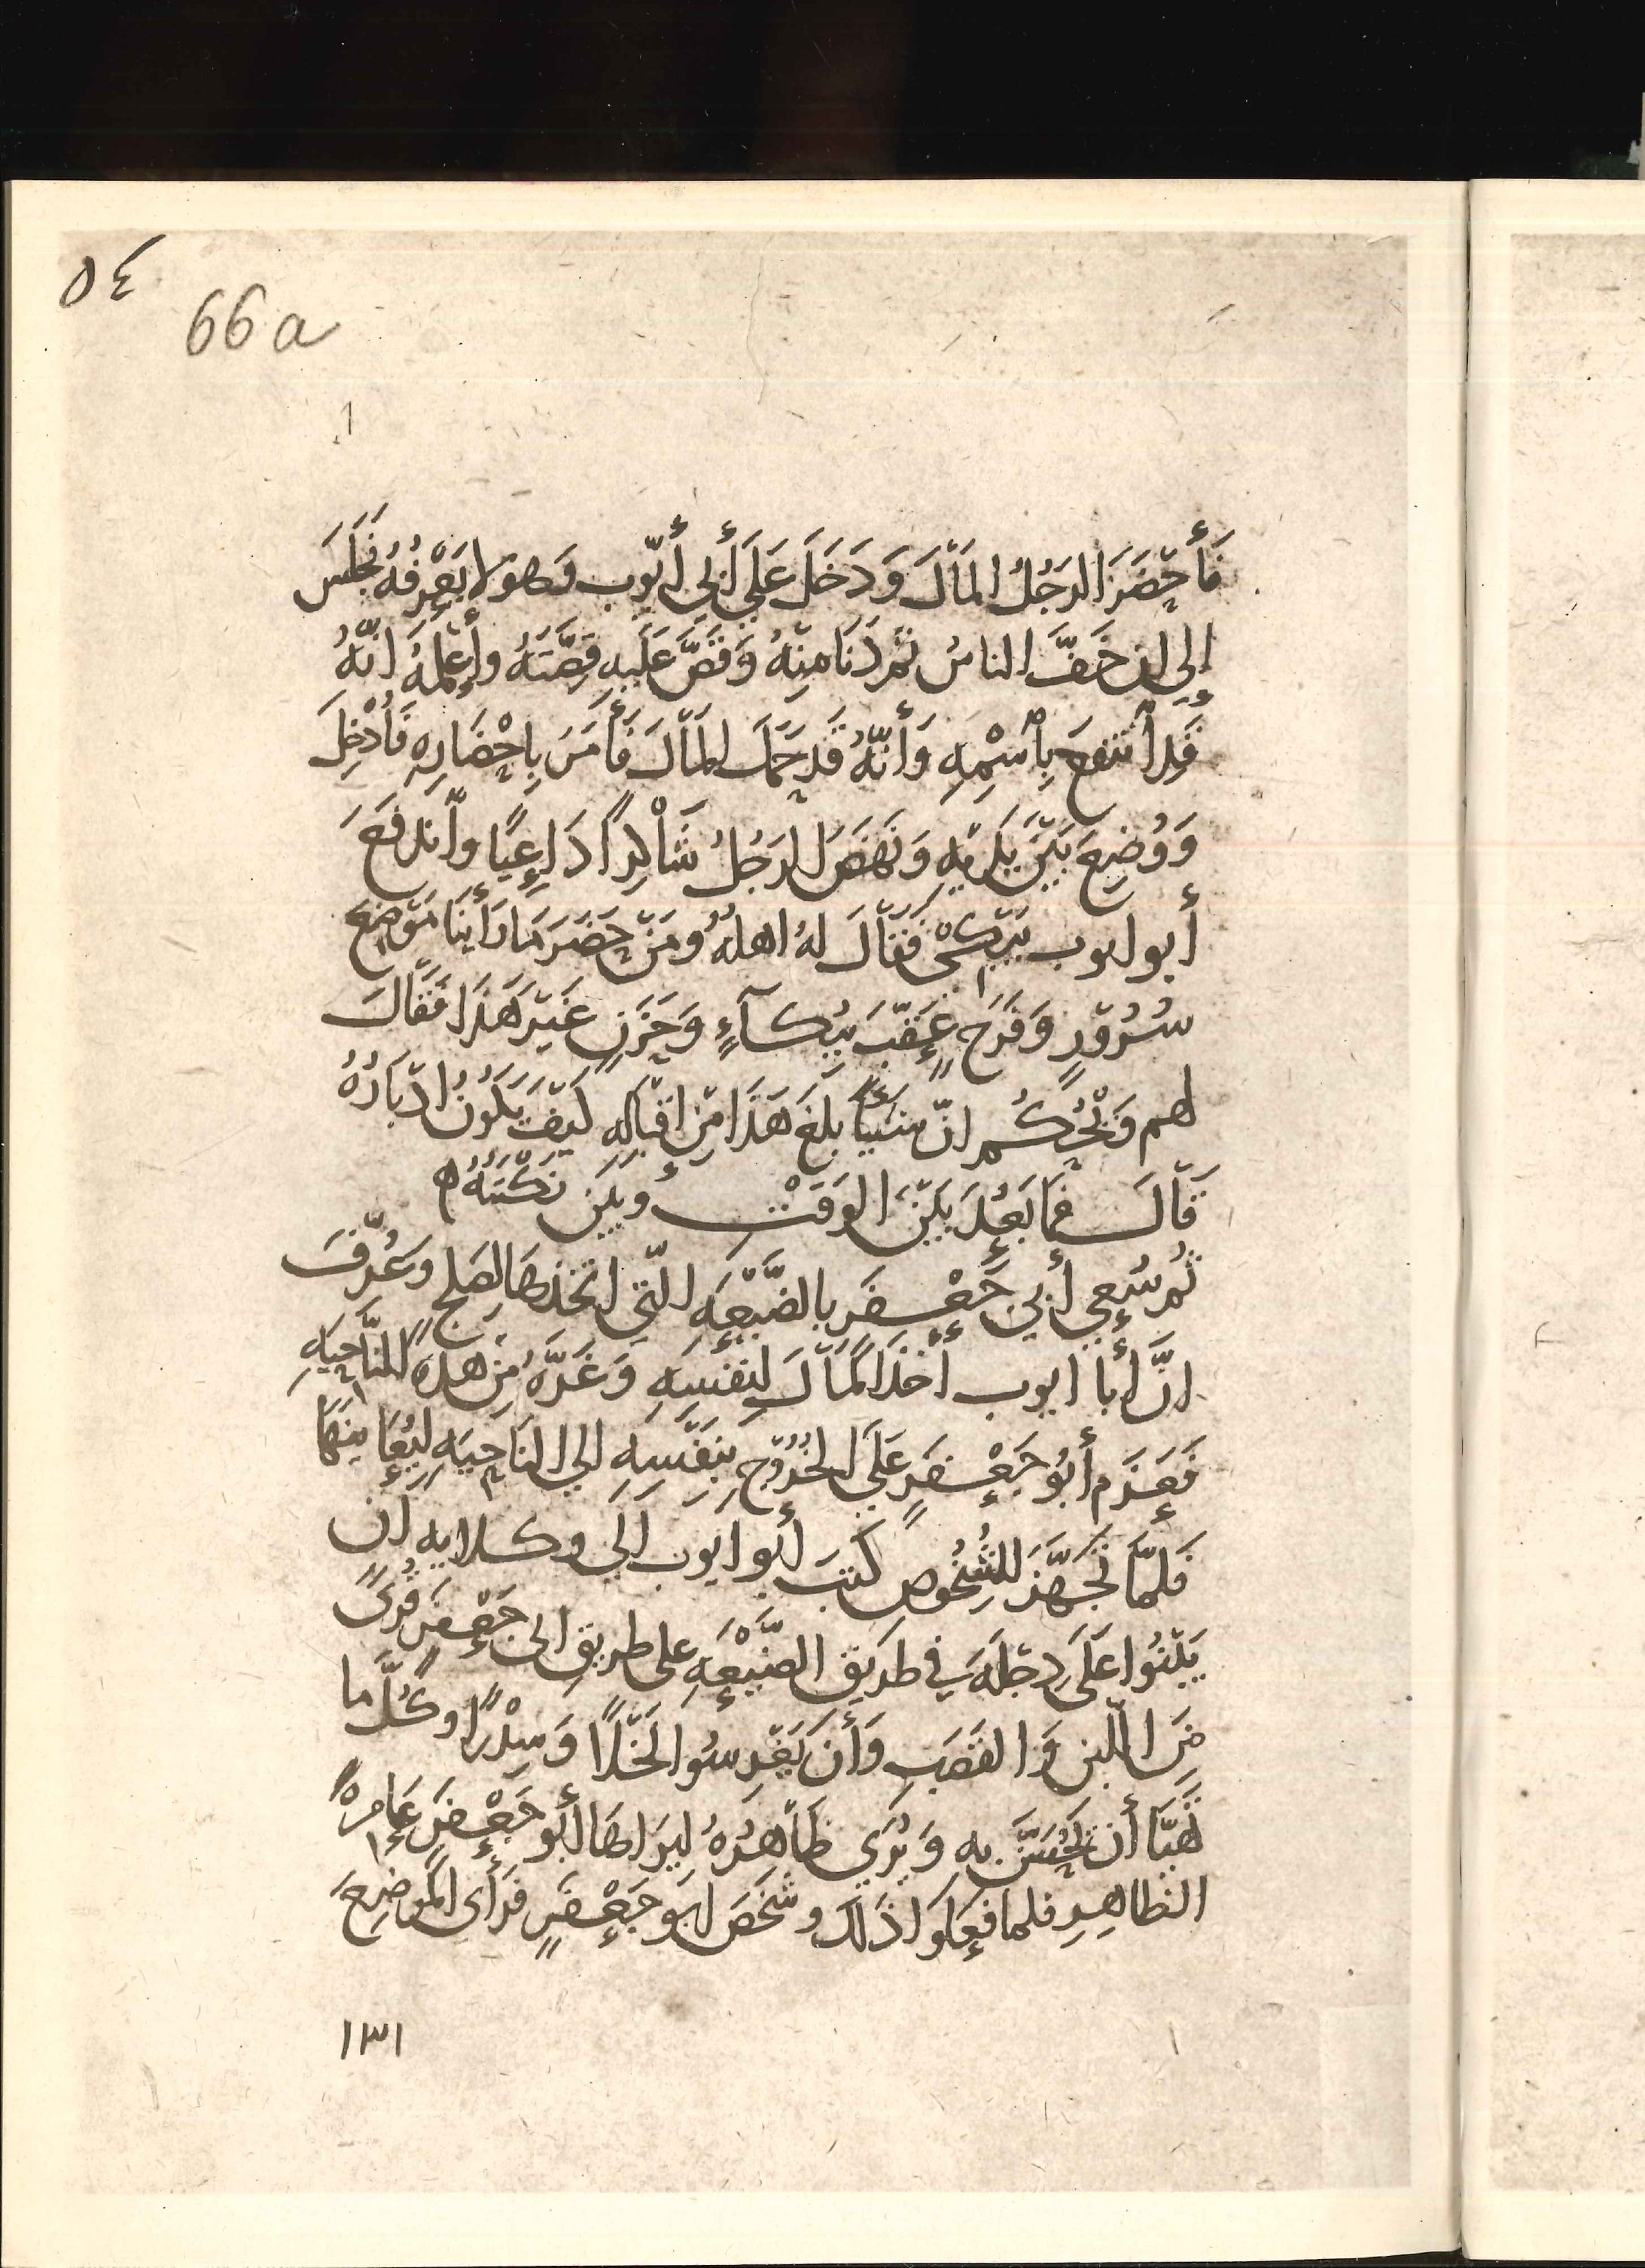 ٥٤
66a
فَأَحْضَرَ الرَجُلُ المَالَ وَدَخَلَ عَلَي أَبي أَيّوب وَهو لا يَعْرِفُهُ فَجَلَسَ
إلي ان خَفَّ الناسُ ثم دَنَا مِنْهُ وَقَصَّ عَلَيهِ قِصَّتَهُ وأَعْلمهُ انّهُ
قَد اَنتفعَ بِاسْمِهِ وَأَنّهُ قَد حَمَل المَالَ فَأَمَرَ بِاحْضَارِهِ فَأُدْخِلَ
وَوُضِعَ بَيْنَ يَدَيْهِ وَنَهَضَ الرَجُلُ شَاكِراً دَاعِيًا وانْدَفَعَ
أبو ايوب يَبْكى فَقَالَ لهُ اهلهُ ومَنْ حَضَرَ مَا رَأَيْنَا مَوْضِعَ
سُرُوْرٍ وَفَرَحٍ عَقّبَ بُكآءٍ وَحَزَنٍ غَيْرَ هَذَا فَقَالَ
لهم وَيْحَكُم انّ شَيْئاً بلغَ هَذَا مِنْ اقْبَالِهِ كَيْفَ يَكُونُ ادْبَارُهُ
قَالَ فمَا بَعُدَ بَيْنَ الوَقْتِ وبين نَكْبَتِهُ ه
ثُم سُعِي أبي جَعْفَر بالضَّيْعَهِ الّتي اتخذهَا لِصَلحٍ وعُرِّفَ
انَّ أَبا ايوب أَخَذَ المَالَ لِنفسِهِ وَغَرَّهُ مِنْ هذه النَّاحِيَهِ
فَعَزم أبُو جَعْفَرٍ عَلَى الخُرُوْجِ بِنَفْسِهِ الي النَاحِيَهِ لِيُعَاينَهَا
فَلمّا تَجَهَّزَ للشُخُوص كَتبَ أبو ايوب الي وكلايه ان
يَبْنُوا عَلَى دِجْلَهَ في طَريق الضَّيْعَهِ على طريق ابى جَعْفَر قُرىً
مِنَ اللّبن وَالقصَبِ وَأَن يَغرِسُوا نَخْلاً وَسِدْرًا وكُلَّ ما
تَهيَّا أَن يَحْسنَ به وَيُرَي ظَاهِرُهُ ليَرَاهَا أبو جَعْفَرٍ عَامِرهً
الظاهِرِ فلما فعَلوا ذلك وشخَصَ ابو جَعْفَرٍ فَرأى المَوضِعَ
١٣١